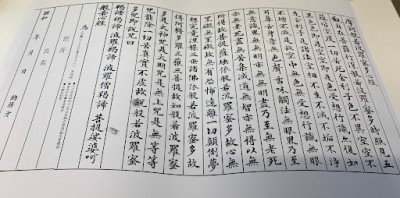 般若波羅蜜多心経
観自在菩薩行深般若波羅蜜多時照見五
蘊皆空度一切苦厄舎利子色不異空空不
異色色即是空空即是色受想行識亦復如
是舎利子是諸法空相不生不滅不垢不浄
不増不減是故空中無色無受想行識無眼
耳鼻舌身意無色声香味触法無眼界乃至
無意識界無無明亦無無明尽乃至無老死
亦無老死尽無苦集滅道無智亦無得以無
所得故菩提薩埵依般若波羅蜜多故心無
罣礙無罣礙故無有恐怖遠離一切顛倒夢
想究竟涅槃三世諸仏依般若波羅蜜多故
得阿耨多羅三藐三菩提故知般若波羅蜜
多是大神呪是大明呪是無上呪是無等等
呪能除一切苦真実不虚故説般若波羅蜜
多呪即説呪曰
羯諦羯諦波羅羯諦波羅僧羯諦菩提娑婆訶
般若心経
為
住所
氏名
昭和 年 月 日